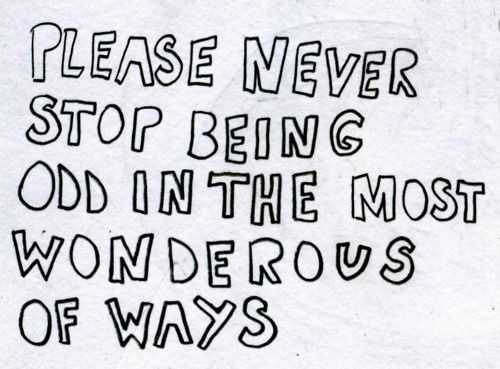 PLEASE NEVER
STOP BEING
ODD IN THE MOST
WONDEROUS
OF WAYS